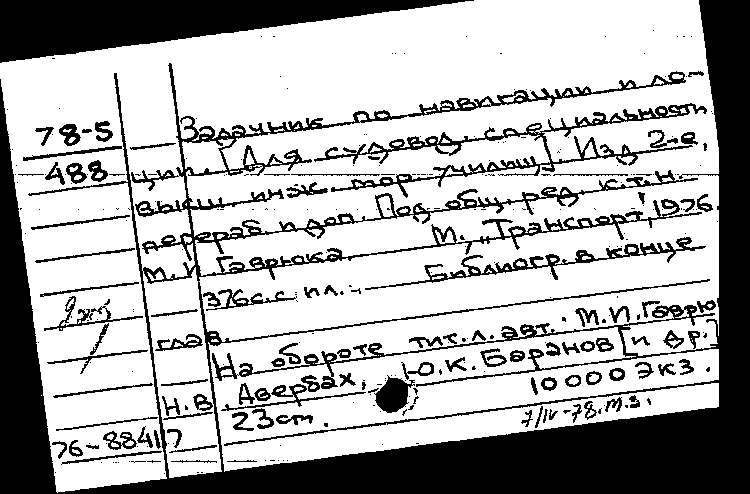 78-5 Задачник по навигации и ло-
488 ции. [Для судовод. специальности
высш. инж. мор. училищ]. Изд. 2-е,
перераб. и доп. Под общ. ред. к.т.н.
М.И. Гаврюка. М., „Транспорт", 1976.
376 с. с ил. Библиогр. в конце
2 экз глав.
На обороте тит. л. авт.: М.И. Гаврю
Н.В. Авербах, Ю.К. Баранов [и др.]
23 cm. 10000 экз.
76-88417 7/IV-78. м.з.